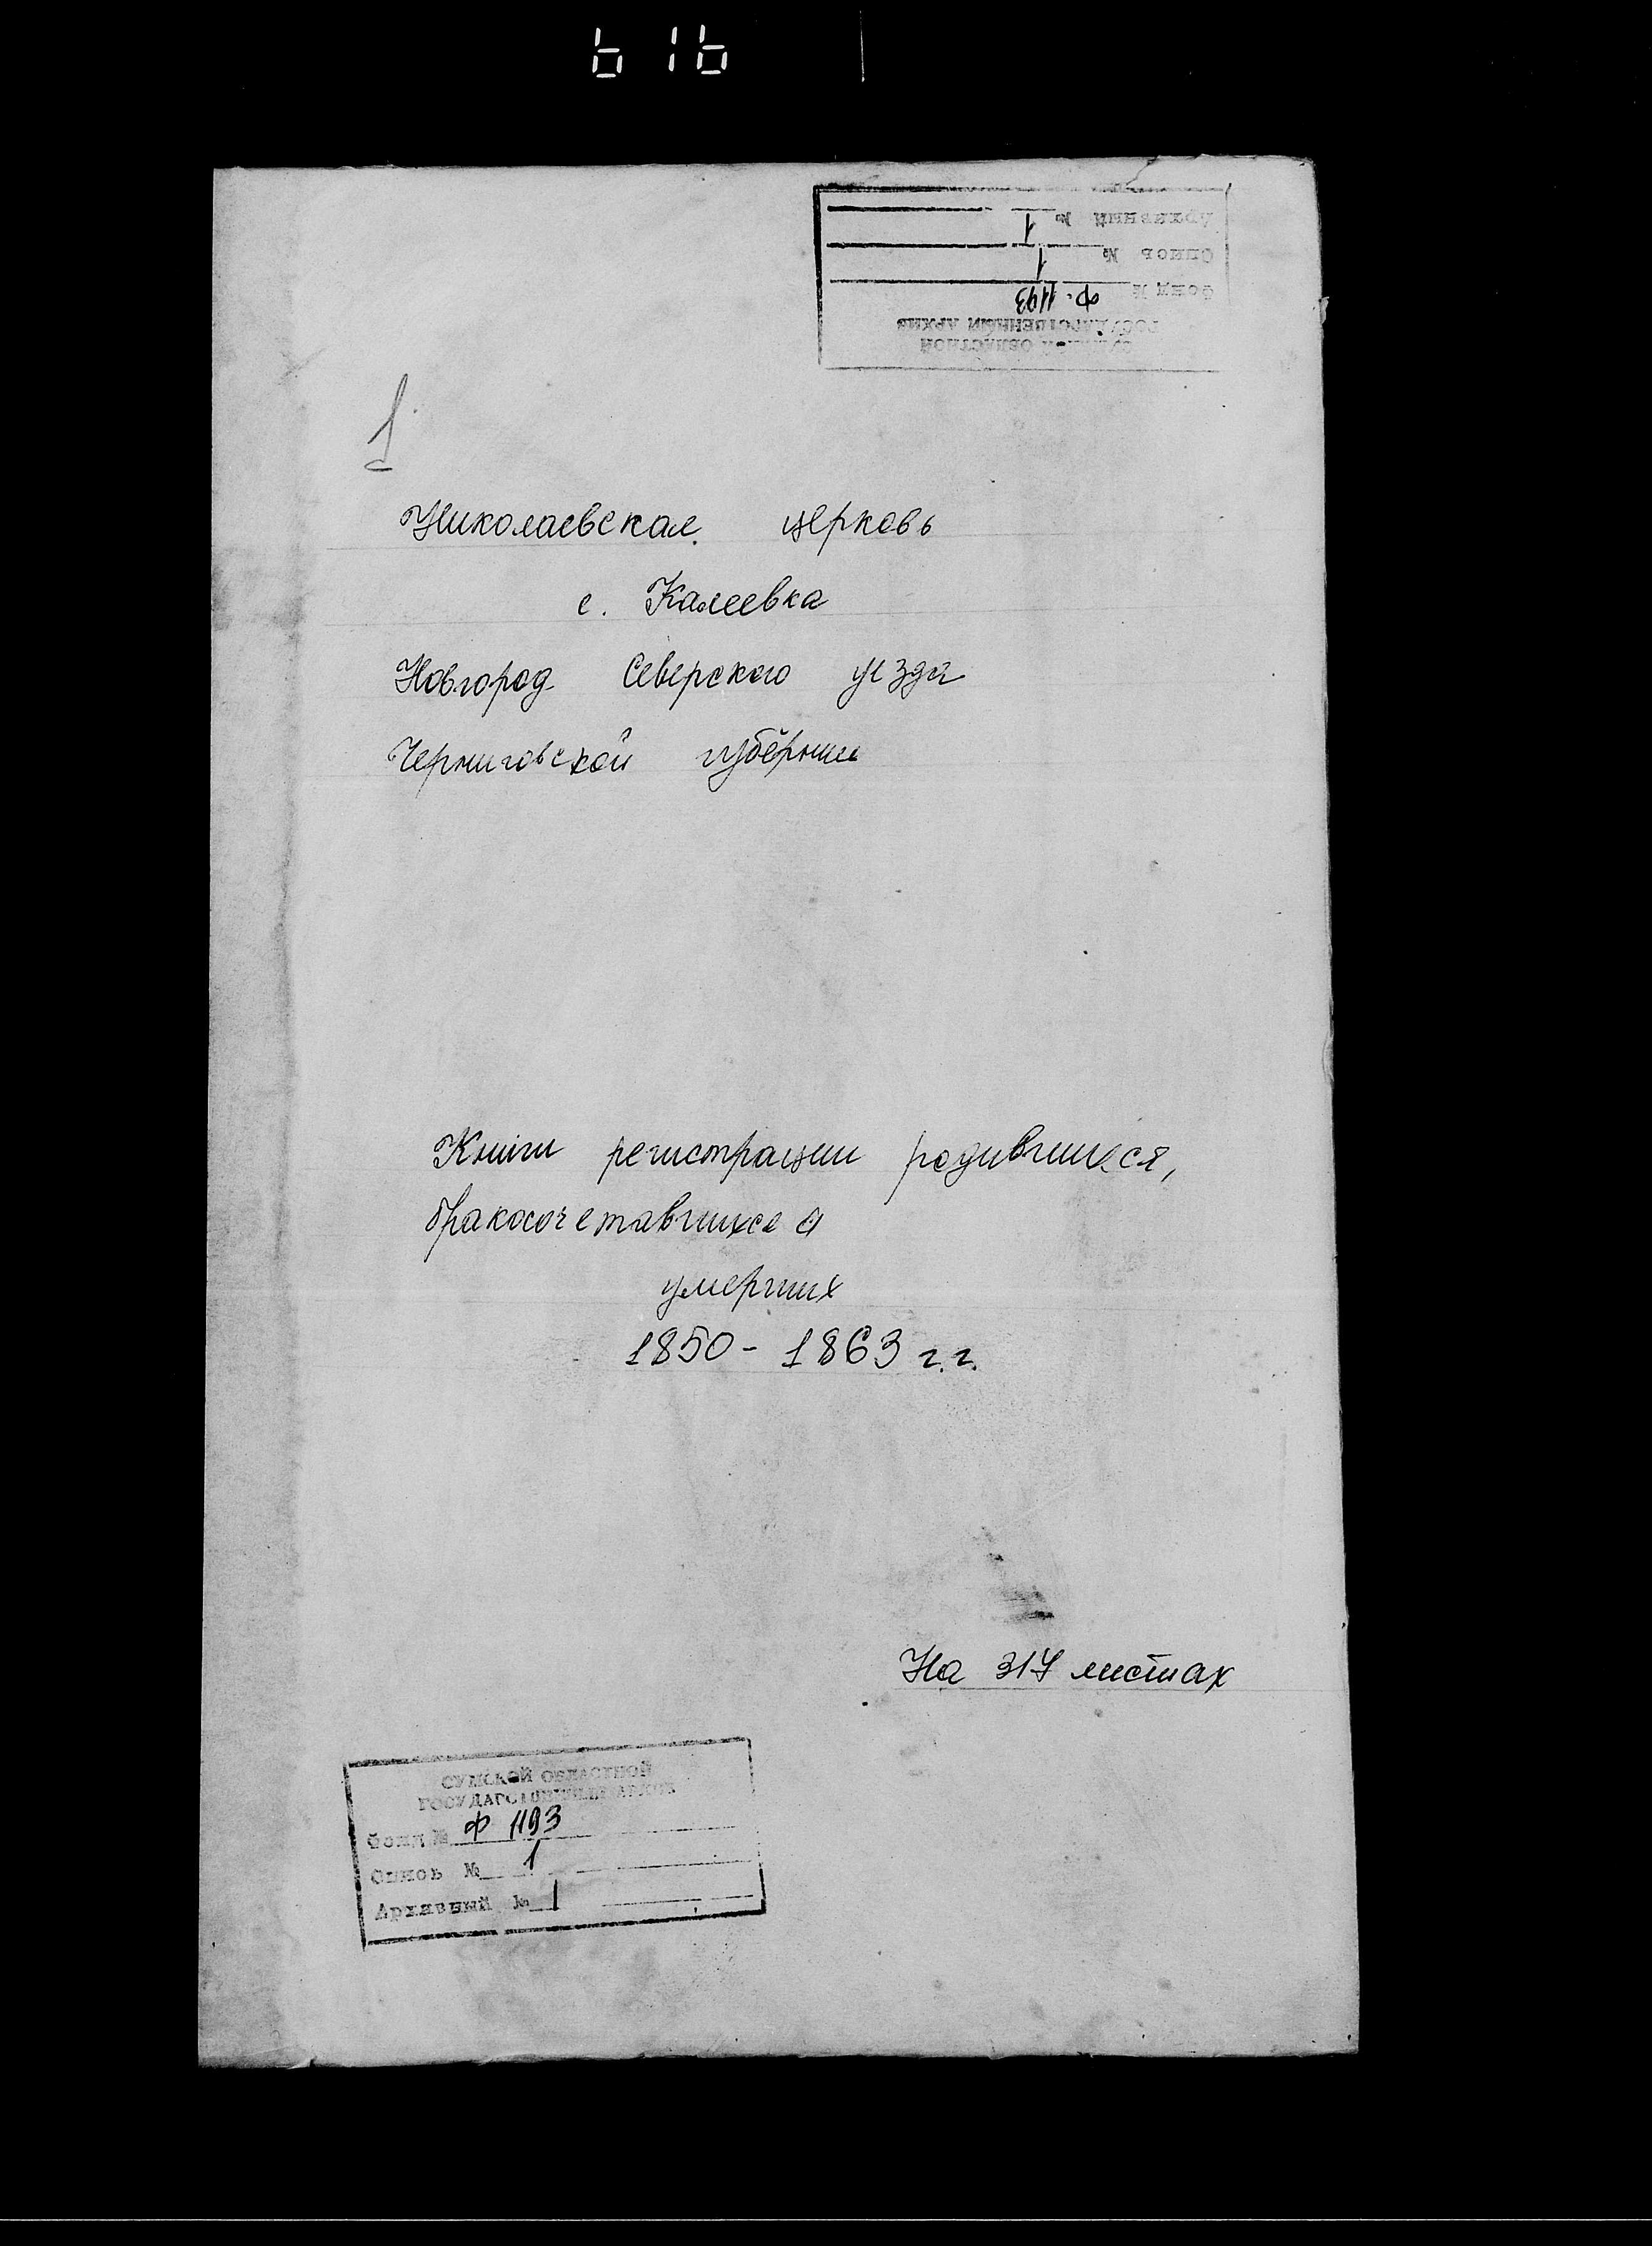 616
Сумской областной
Государственный архив
Фонд № Ф. 1193
Опись № 1
Архивный № 1
1
Николаевская церковь
с. Калеевка
Новгород Северского уезда
Черниговской губернии
Книги регистрации родившихся,
бракосочетавшихся
умерших
1850 - 1863 г.г.
На 317 листах
СУМСКОЙ ОБЛАСТНОЙ
ГОСУДАРСТВЕННЫЙ АРХИВ
Фонд № Ф 1193
Опись № 1
Архивный № 1